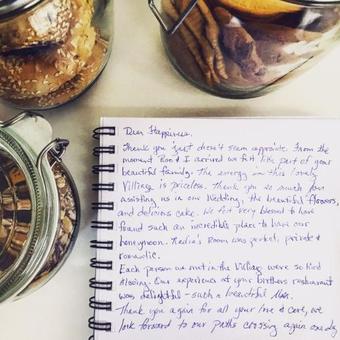 Dear Happiness,
Thank you just doesn't seem appropriate. From the
moment Ron & I arrived we felt like part of your
beautiful family. The energy in this lovely
Village is priceless. Thank you so much for
assisting us in our Wedding, the beautiful flowers,
and delicious cake. We felt very blessed to have
found such an incredible place to have our
honeymoon. Nadia's Room was perfect, private &
romantic.
Each person we met in the Village were so kind
Our experience at your brothers restaurant
was delightful - such a beautiful
Thank you again for all your love & care, we
look forward to our paths crossing again one day